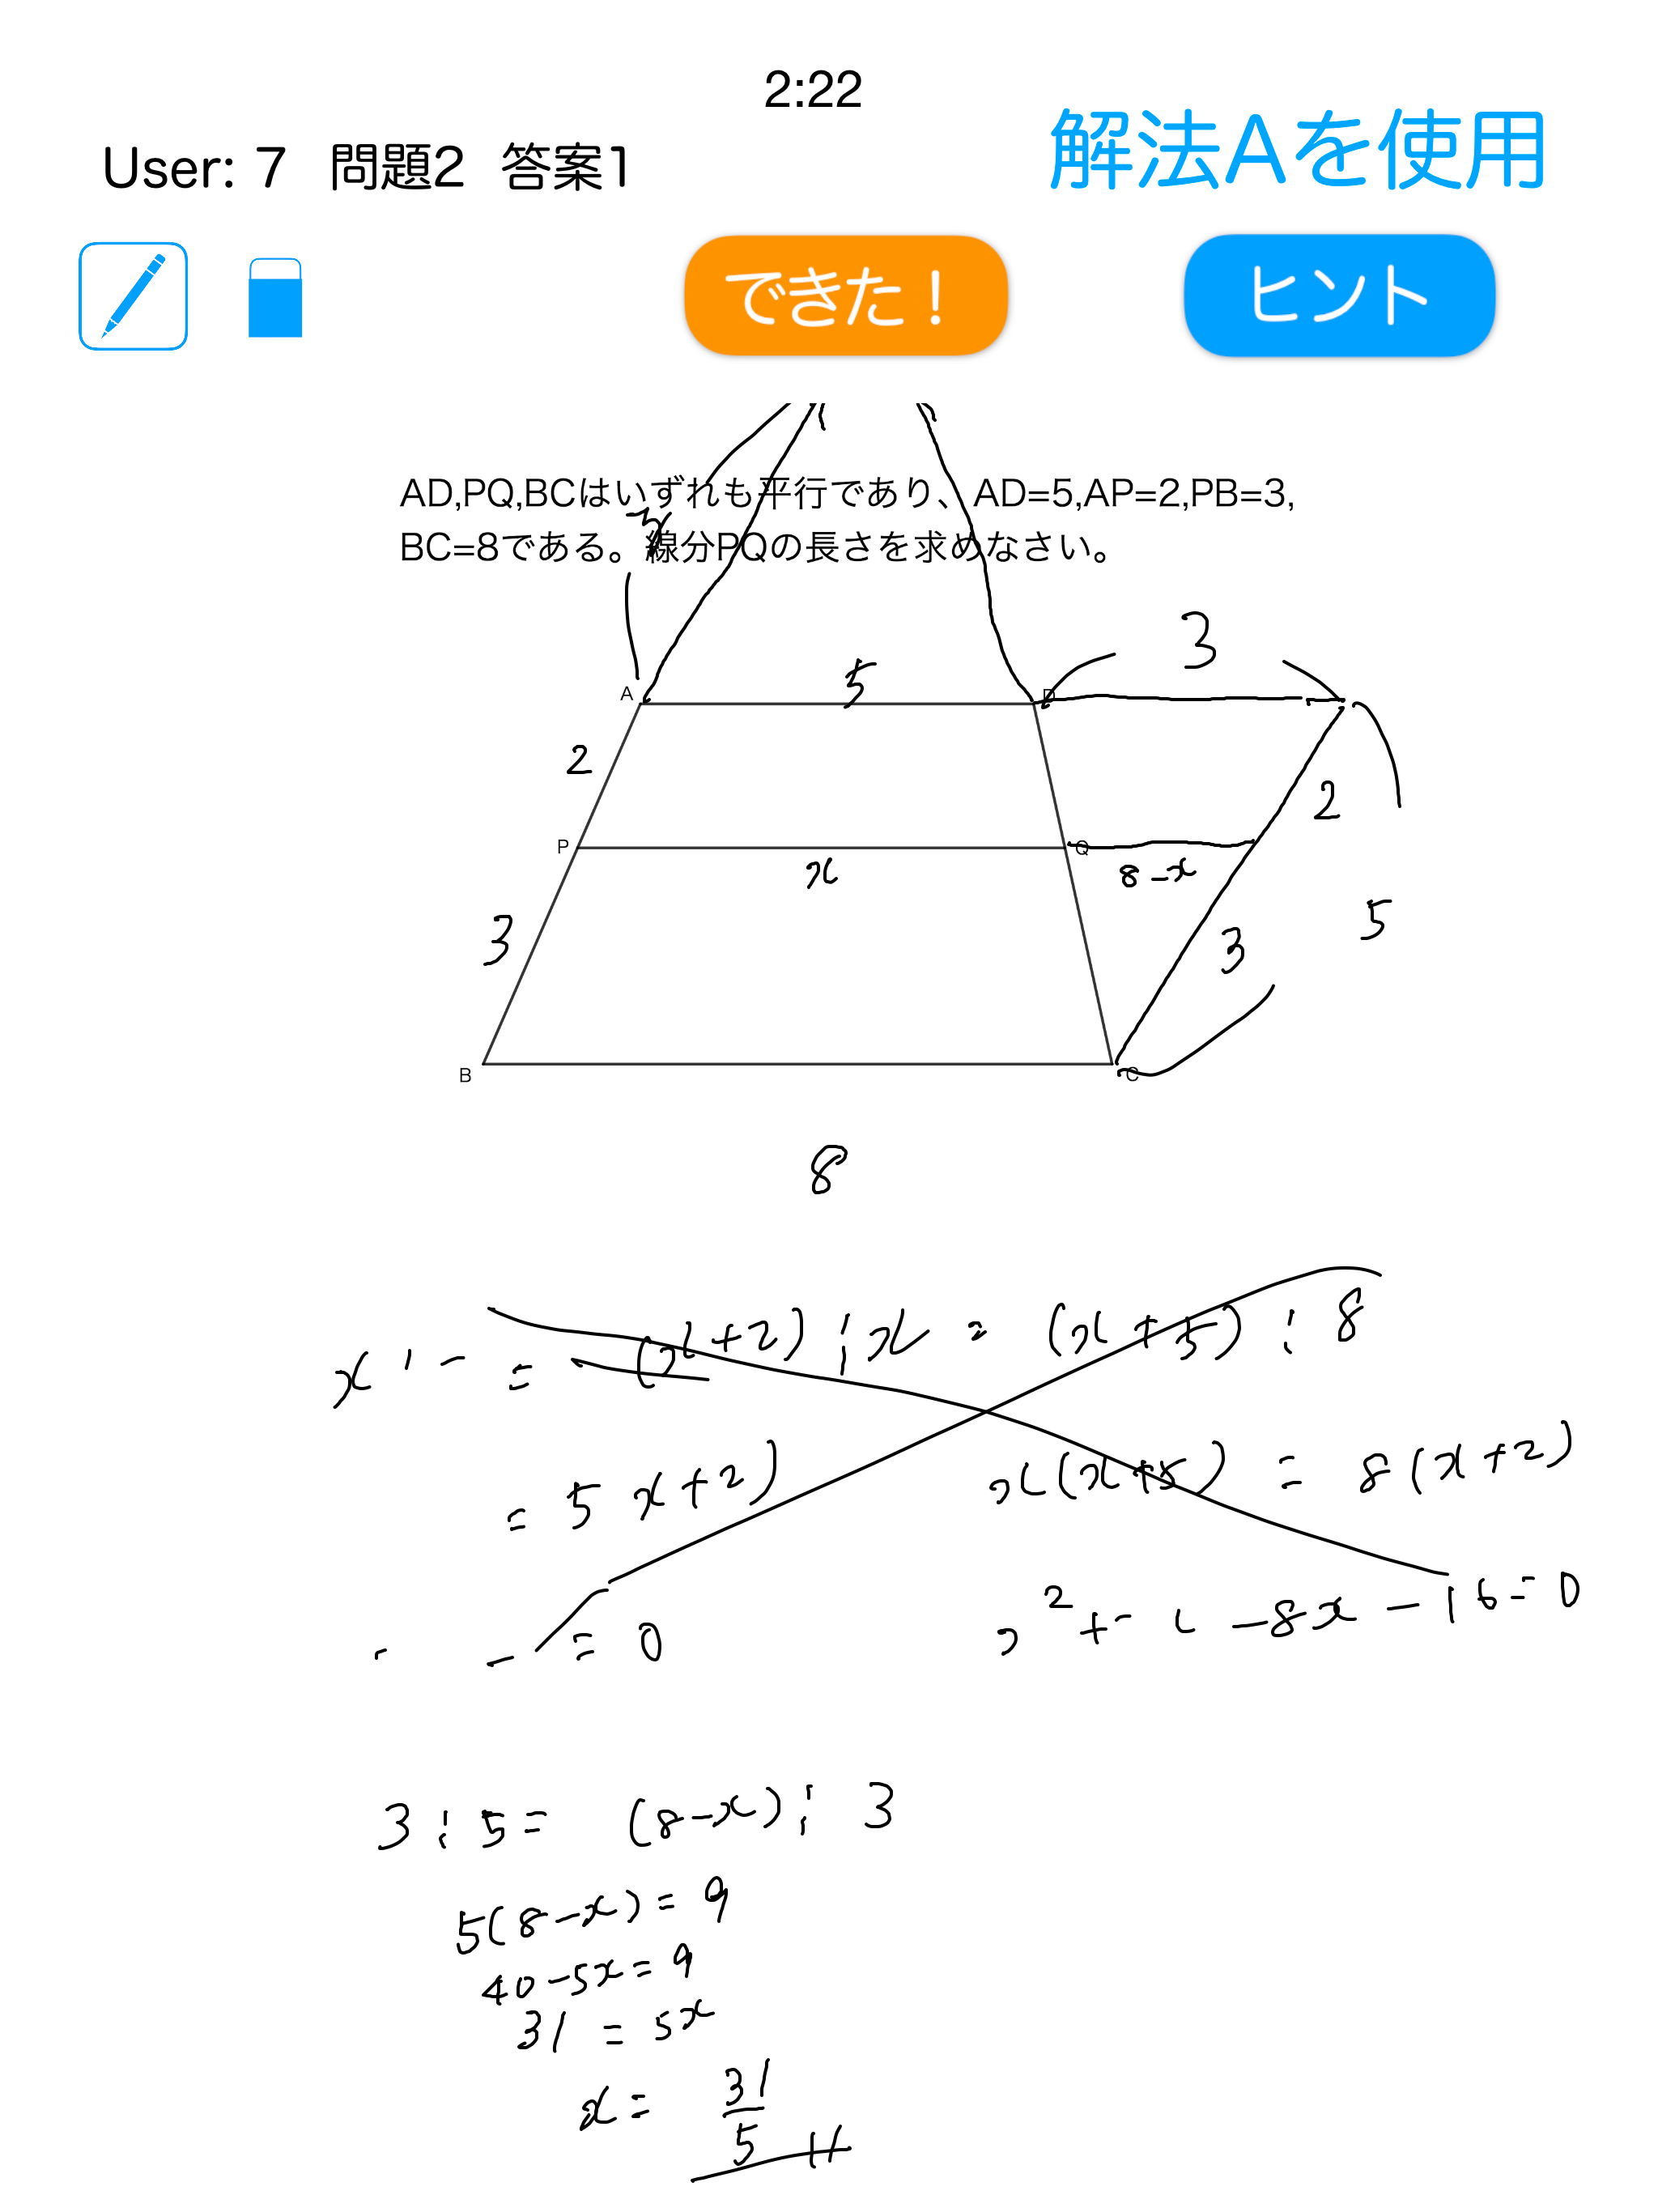 2:22
User: 7 問題2 答案1
解法Aを使用
できた！
ヒント
AD,PQ,BCはいずれも平行であり、AD=5,AP=2,PB=3,
BC=8である。線分PQの長さを求めなさい。
3
5
A
D
2
2
P
Q
x
8-x
3
3
5
B
C
8
(x+2):x=(x+5):8
x =
=5x+2)
x(x+5)=8(x+2)
=0
-8x-16=0
3:5=(8-x):3
5(8-x)=9
40-5x=9
31=5x
x=31/5